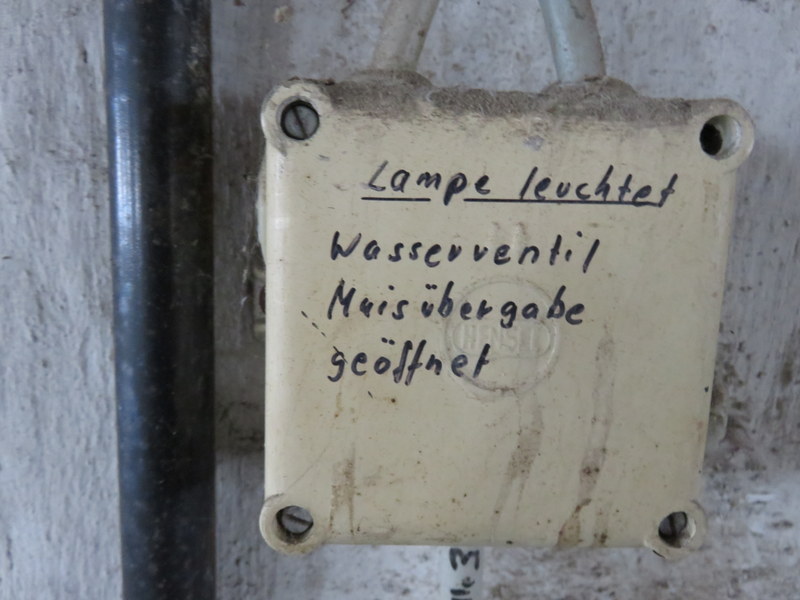 Lampe leuchtet
Wasserventil
Maisübergabe
geöffnet